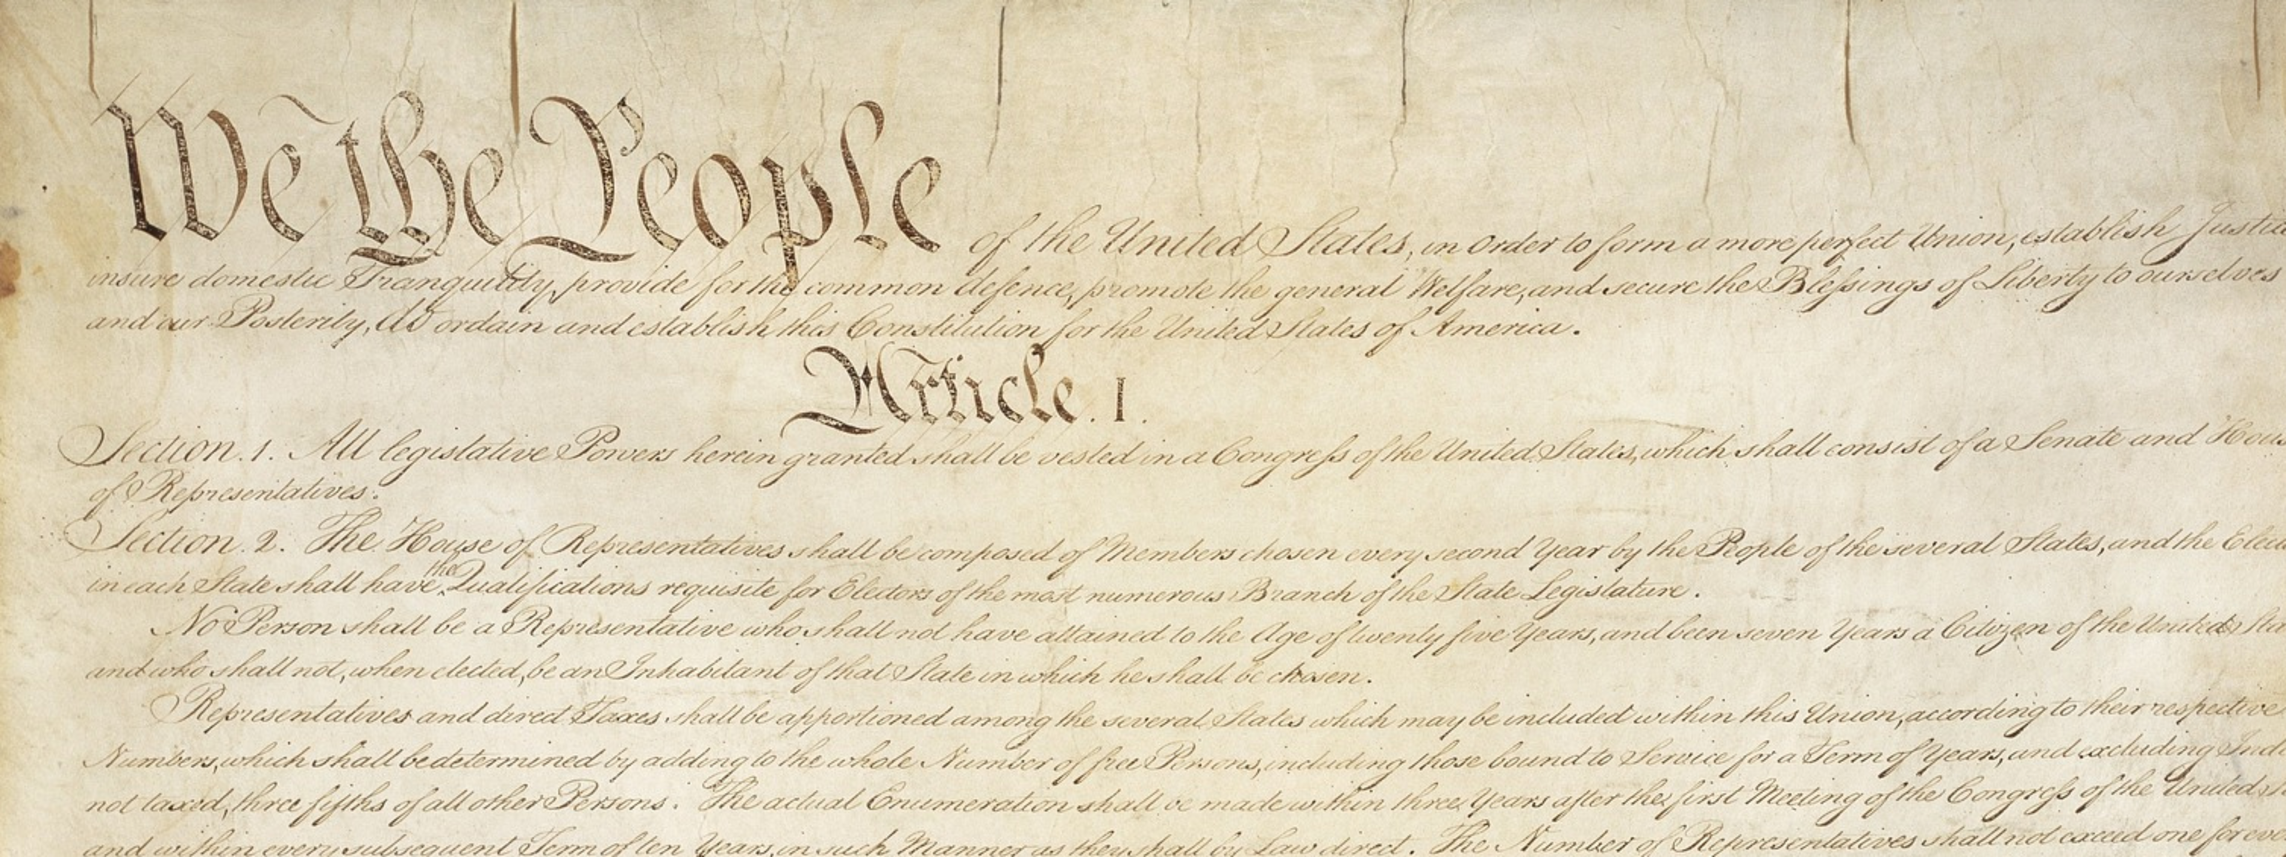 We the People of the United States, in Order to form a more perfect Union, establish Justic
insure domestic Tranquility, provide for the common defence, promote the general Welfare, and secure the Blessings of Liberty to ourselves
and our Posterity, do ordain and establish this Constitution for the United States of America.
Article. I.
Section. 1. All legislative Powers herein granted shall be vested in a Congress of the United States, which shall consist of a Senate and Hous
of Representatives.
Section. 2. The House of Representatives shall be composed of Members chosen every second Year by the People of the several States, and the Elect
in each State shall have the Qualifications requisite for Electors of the most numerous Branch of the State Legislature.
No Person shall be a Representative who shall not have attained to the Age of twenty five Years, and been seven Years a Citizen of the United Sta
and who shall not, when elected, be an Inhabitant of that State in which he shall be chosen.
Representatives and direct Taxes shall be apportioned among the several States which may be included within this Union, according to their respective
Numbers, which shall be determined by adding to the whole Number of free Persons, including those bound to Service for a Term of Years, and excluding Indi
not taxed, three fifths of all other Persons. The actual Enumeration shall be made within three Years after the first Meeting of the Congress of the United
and within every subsequent Term of ten Years, in such Manner as they shall by Law direct. The Number of Representatives shall not exceed one for eve